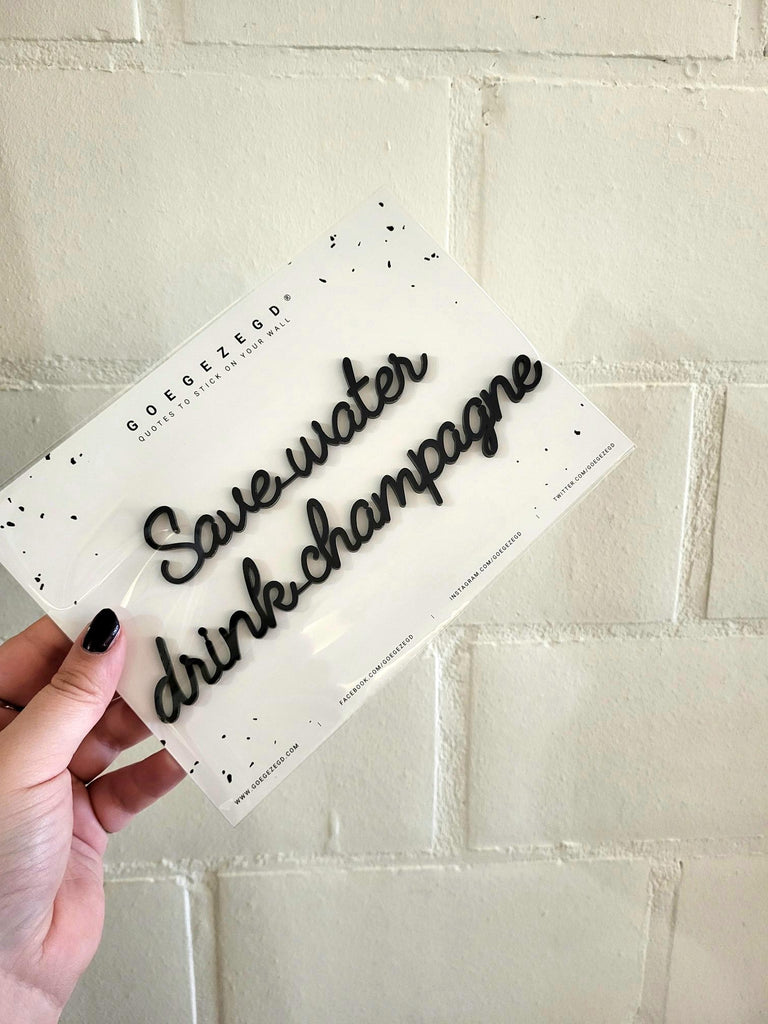 GOEGEZEGD®
QUOTES TO STICK ON YOUR WALL
Save water
drink champagne
WWW.GOEGEZEGD.COM | FACEBOOK.COM/GOEGEZEGD | INSTAGRAM.COM/GOEGEZEGD | TWITTER.COM/GOEGEZEGD